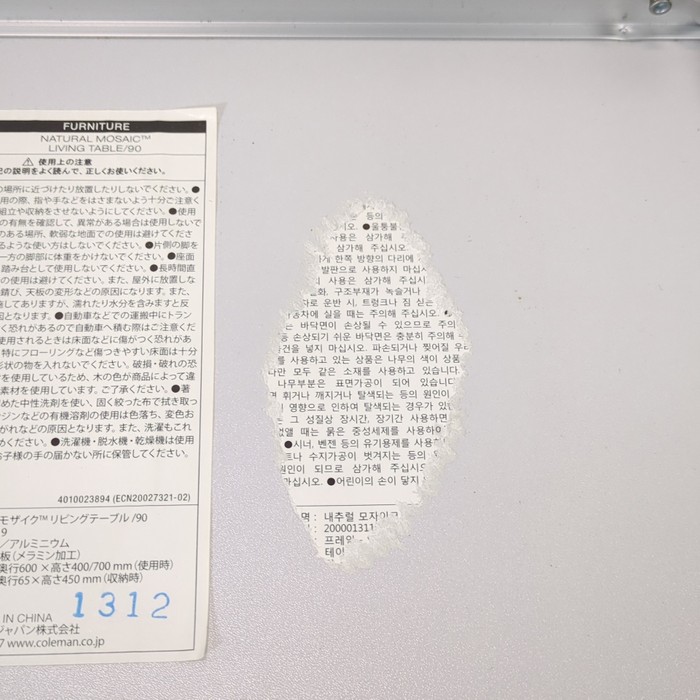 FURNITURE
NATURAL MOSAIC™
LIVING TABLE/90
⚠ 使用上の注意
記の説明をよく読んで、正しくお使いください。
の場所に近づけたり放置したりしないでください。●
用の際、指や手などをはさまないよう十分ご注意く
組立や収納をさせないようにしてください。●使用
の有無を確認して、異常がある場合は使用しないで
のある場所、軟弱な地面での使用は避けてください。
るような使い方はしないでください。●片側の脚を
一方の脚部に体重をかけないでください。●座面
踏み台として使用しないでください。●長時間直
の使用は避けてください。また、屋外に放置しな
錆び、天板の変形などの原因になります。また、
施してありますが、濡れたり水分を含みますと反
因となります。●自動車などでの運搬中にトラン
く恐れがあるので自動車へ積む際はご注意くだ
使用されるときは床面などに傷がつく恐れがあ
特にフローリングなど傷つきやすい床面は十分
形状の物を入れないでください。破損・破れの恐
を使用しているため、木の色が商品によって違
素材を使用しています。ご了承ください。●著
めた中性洗剤を使い、固く絞った布で拭き取っ
ジンなどの有機溶剤の使用は色落ち、変色お
がれなどの原因となります。また、洗濯もこれ
めください。●洗濯機・脱水機・乾燥機は使用
お子様の手の届かない所に保管してください。
4010023894 (ECN20027321-02)
モザイク™リビングテーブル /90
9
／アルミニウム
板（メラミン加工）
奥行600 × 高さ400/700 mm（使用時）
奥行65 × 高さ450 mm（収納時）
1312
IN CHINA
ジャパン株式会社
7 www.coleman.co.jp
등의
오. ●울퉁불
사용은 삼가해
삼가해 주십시오
한쪽 방향의 다리에
발판으로 사용하지 마십시
사용은 삼가해 주십시
화, 구조부재가 녹슬거나
차로 운반 시, 트렁크나 짐 싣는
동차에 실을 때는 주의해 주십시오.
는 바닥면이 손상될 수 있으므로 주의
손상되기 쉬운 바닥면은 충분히 주의해
건을 넣지 마십시오. 파손되거나 찢어질 우려
를 사용하고 있는 상품은 나무의 색이 상품
다만 모두 같은 소재를 사용하고 있습니다.
나무부분은 표면가공이 되어 있습니다
면 휘거나 깨지거나 탈색되는 등의 원인이
영향으로 인하여 탈색되는 경우가 있
그 성질상 장시간, 장기간 사용하면
없앨 때는 묽은 중성세제를 사용하여
●시너, 벤젠 등의 유기용제를 사용하
트나 수지가공이 벗겨지는 등의
원인이 되므로 삼가해 주십시오
마십시오. ●어린이의 손이 닿지
명 : 내추럴 모자이크
: 200001311
프레임
테이